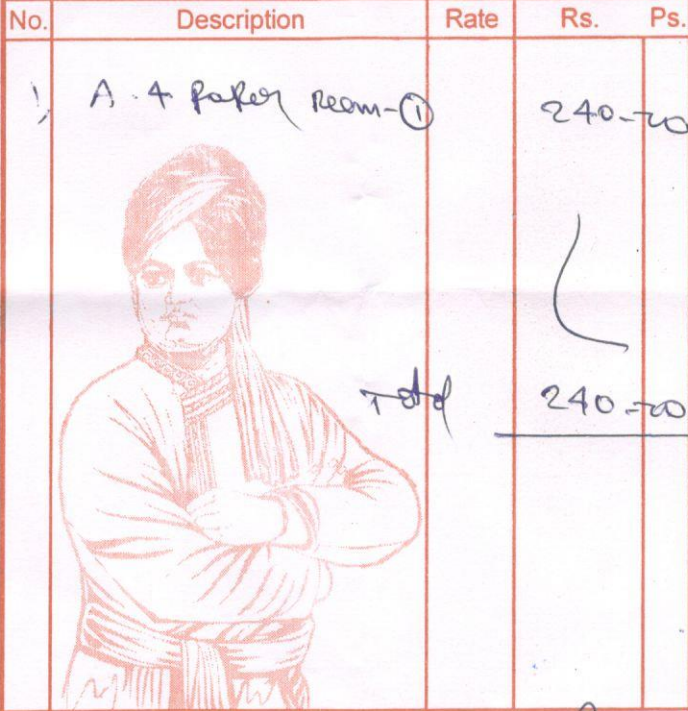 No. Description Rate Rs. Ps.
1) A.4 Paper Reem-① 240-00
Total 240-00